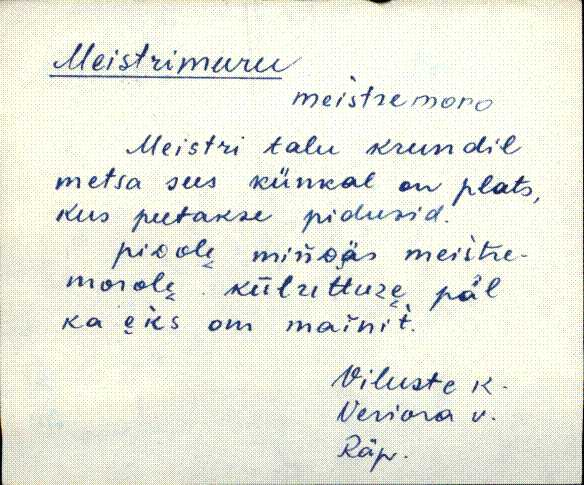 Meistrimuru
meistremoro
Meistri talu krundil
metsa sees künkal on plats,
kus peetakse pidusid.
pidole̮ mińnäs meistre-
morole̮. külzüttuze̮ päl
ka e̮ks om mainit.
Viluste k.
Veriora v.
Räp.